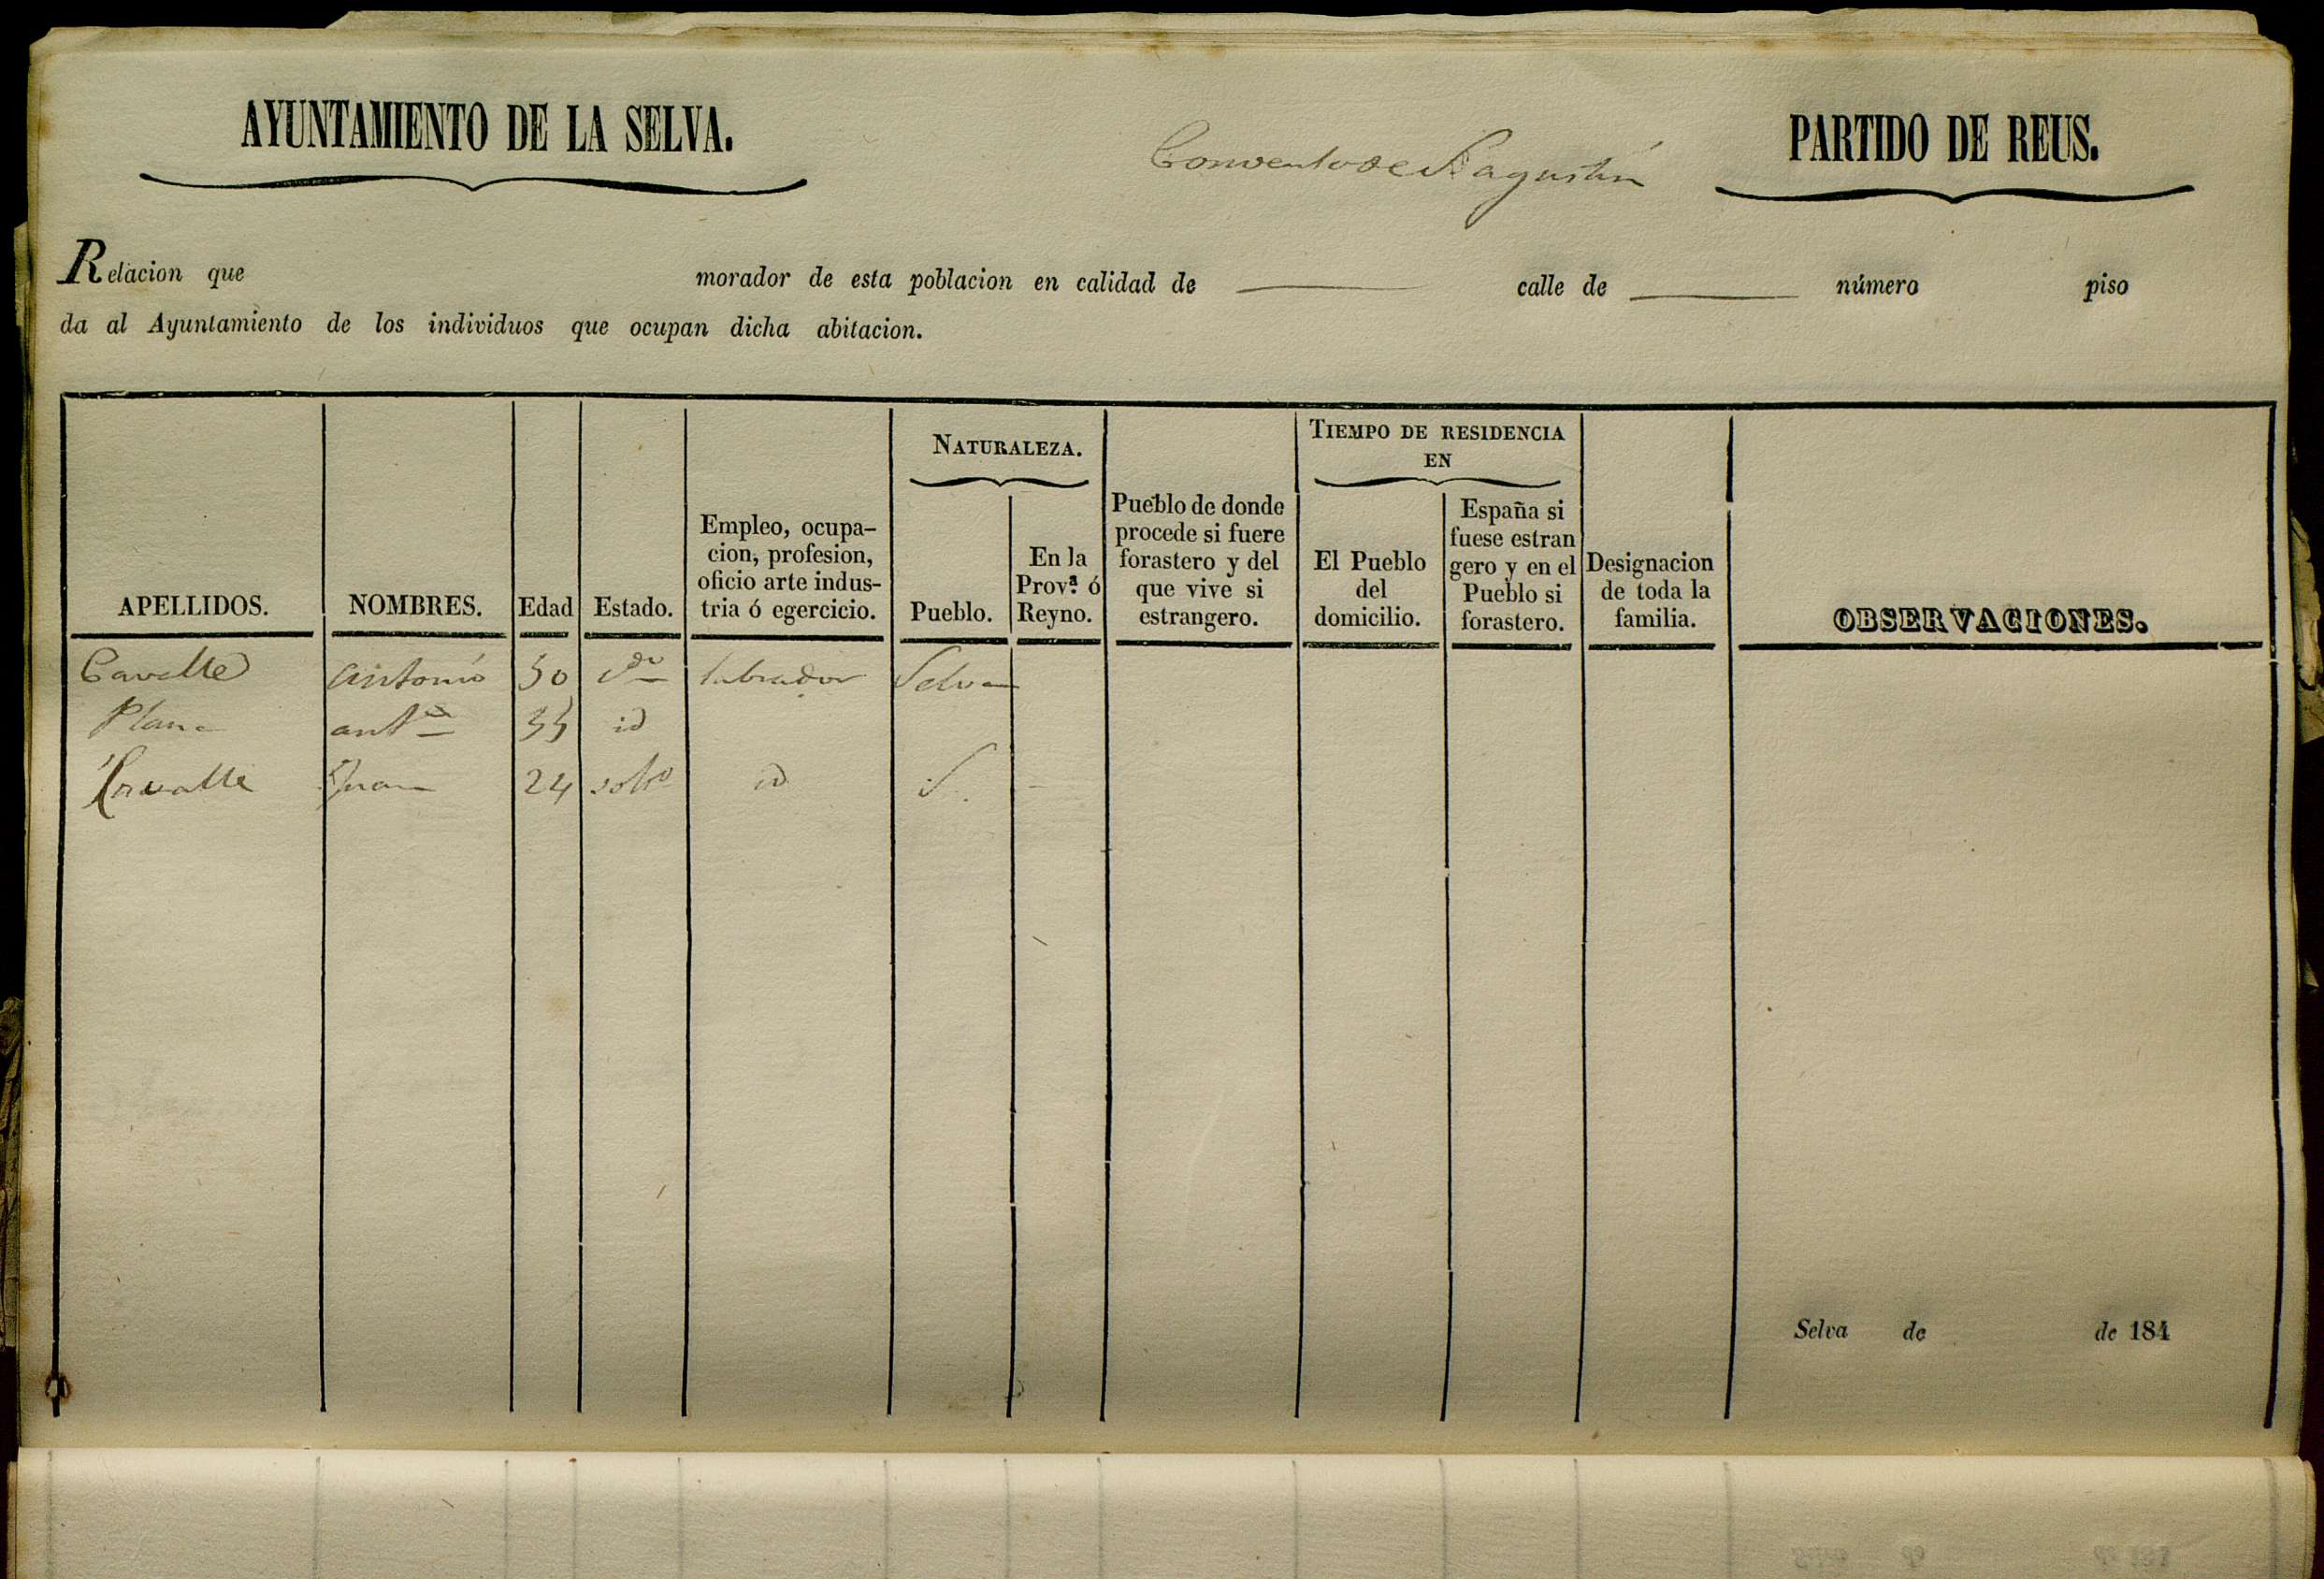 AYUNTAMIENTO DE LA SELVA.
Convento de S. agustin
PARTIDO DE REUS.
Relacion que morador de esta poblacion en calidad de calle de número piso
da al Ayuntamiento de los individuos que ocupan dicha abitacion.
APELLIDOS.
NOMBRES.
Edad
Estado.
Empleo, ocupa-
cion, profesion,
oficio arte indus-
tria ó egercicio.
NATURALEZA.
Pueblo.
En la
Prov.ª ó
Reyno.
Pueblo de donde
procede si fuere
forastero y del
que vive si
estrangero.
TIEMPO DE RESIDENCIA
EN
El Pueblo
del
domicilio.
España si
fuese estran
gero y en el
Pueblo si
forastero.
Designacion
de toda la
familia.
OBSERVACIONES.
Antonio 50 labrador Selva
Plana ant.ª 55 id
Juan 24 solt.º id S.
Selva de de 184